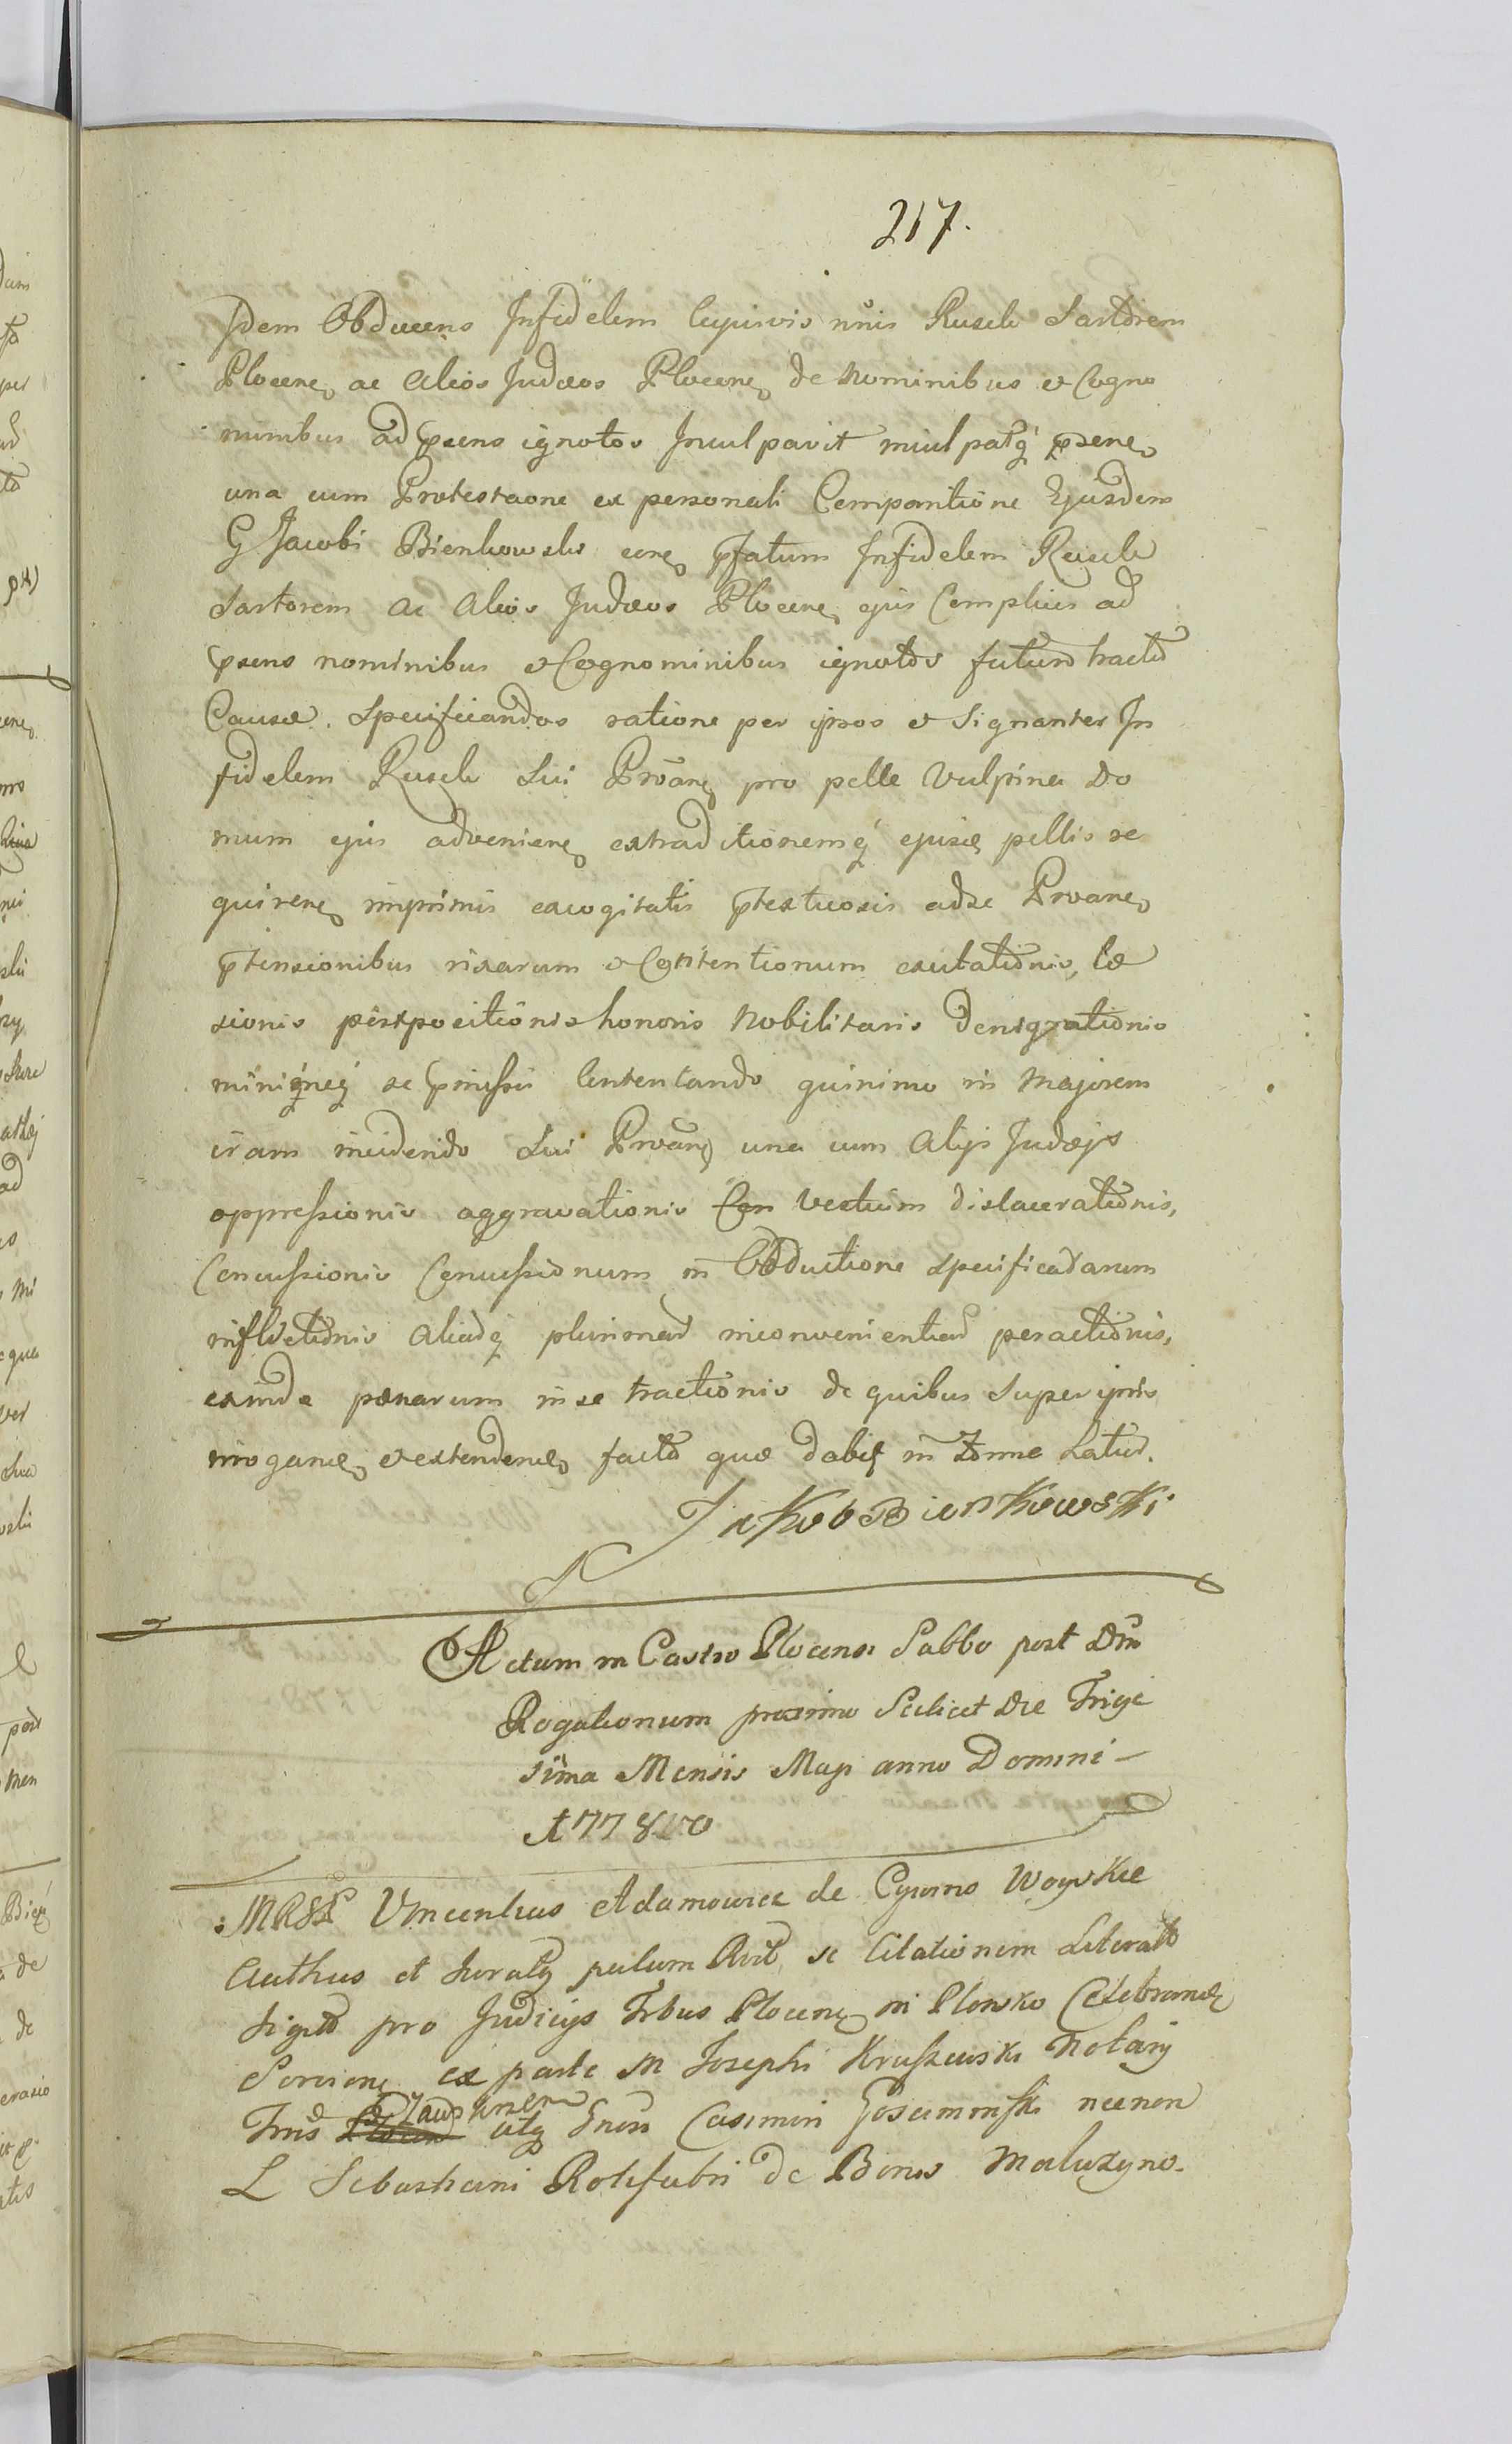 217.
Idem Obducens Infidelem cujusvis nnis Rusek Sartorem
Plocen ac Alios Judæos Plocen de Nominibus et Cogno
minibus ad psens ignotos Inculpavit inculpatq psen
una cum Protestaone ex personali Comparitione Ejusdem
G Jacobi Bienkowski con pfatum Infidelem Rusek
Sartorem ac Alios Judæos Plocen ejus Complices ad
psens nominibus et Cognominibus ignotos futuro tractu
Causæ specificandos ratione per ipsos et Signanter In
fidelem Rusek Sui Proan pro pelle Vulpina Do
mum ejus advenien extraditionemq ejusd pellis re
quiren imprimis excogitatis ptextuosis adse Proan
ptensionibus rixarum et Contentionum excitationis, læ
sionis honoris Nobilitaris Denigrationis
se pmissis contentando quinimo in Majorem
iram incidendo Sui Proan una cum Alijs Judæis
oppressionis aggravationis Con Vestium dislacerationis,
Concussionis Concussionum in Obductione specificatarum
inflictionis Aliadq plurima inconvenientia peractionis,
exinde pænarum in se tractionis de quibus super ipsis
irrogand et extendend facto quo Dabit in Tnno Latus.
Jakob Bienkowski
Actum in Castro Plocensi Sabbo post Dm
Rogationum proximo Scilicet Die Trige
sima Mensis Maji anno Domini
1778vo
MRSP Vincentius Adamowicz de Cywino Woyskie
Authus et Juratq palum Rcit se Citationem Literalt
Sigto pro Judicijs Trbus Plocen in Plonsko Celebrand
Porcione ex parte M Josephi Kruszewski Notarij
Trris Plocen Zawkrznen atq Gnosi Casimiri Gosciminski necnon
L Sebastiani Rotifabri de Bonis Maluzyno.